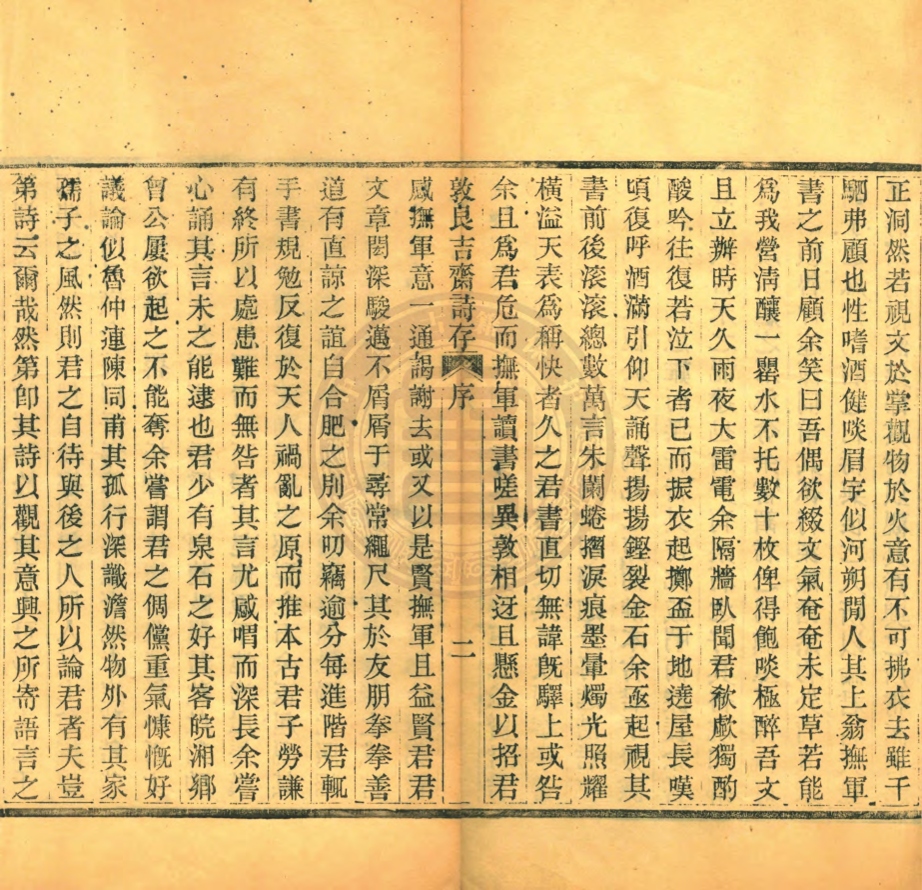 正洞然若視文於掌觀物於火意有不可拂衣去雖千
駟弗顧也性嗜酒健啖眉宇似河朔閒人其上翁撫軍
書之前日顧余笑曰吾偶欲綴文氣奄奄未定草若能
爲我營淸釀一罌水不托數十枚俾得飽啖極醉吾文
且立辦時天久雨夜大雷電余隔牆臥聞君欷歔獨酌
酸吟往復若泣下者已而振衣起擲盃于地遶屋長嘆
頃復呼酒滿引仰天誦聲揚揚鏗裂金石余亟起視其
書前後滚滚總數萬言朱闌蜷摺淚痕墨暈燭光照耀
橫溢天表爲稱快者久之君書直切無諱旣驛上或咎
余且爲君危而撫軍讀書嗟異敦相迓且懸金以招君
敦良吉齋詩存 序 二
感撫軍意一通謁謝去或又以是賢撫軍且益賢君君
文章閎深駿邁不屑屑于尋常繩尺其於友朋拳拳善
道有直諒之誼自合肥之別余叨竊逾分每進階君輒
手書規勉反復於天人禍亂之原而推本古君子勞謙
有終所以處患難而無咎者其言尤感喟而深長余嘗
心誦其言未之能逮也君少有泉石之好其客皖湘鄉
曾公屢欲起之不能奪余嘗謂君之倜儻重氣慷慨好
議論似魯仲連陳同甫其孤行深識澹然物外有其家
孺子之風然則君之自待與後之人所以論君者夫豈
第詩云爾哉然第卽其詩以觀其意興之所寄語言之